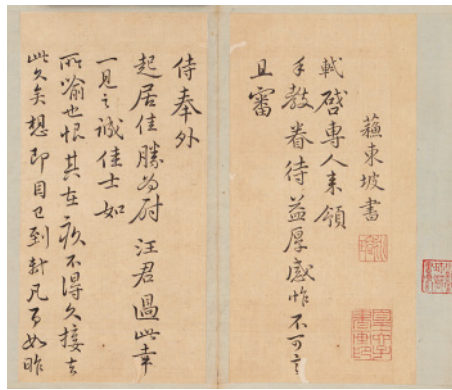 蘓東坡書
軾啓專人来領
手教眷待益厚感怍不可言
且審
侍奉外
起居佳勝為尉 汪君過此幸
一見之誠佳士如
所喻也恨其在疚不得久接去
此久矣想即目已到 凡百如昨